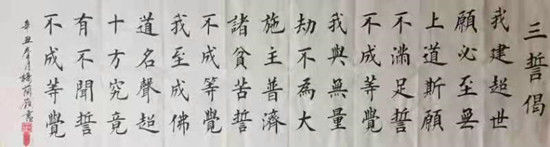 三誓偈
我建超世
願必至無
上道斯願
不滿足誓
不成等覺
我與無量
劫不為大
施主普濟
諸貧苦誓
不成等覺
我至成佛
道名聲超
十方究竟
有不聞誓
不成等覺
辛丑 月 書